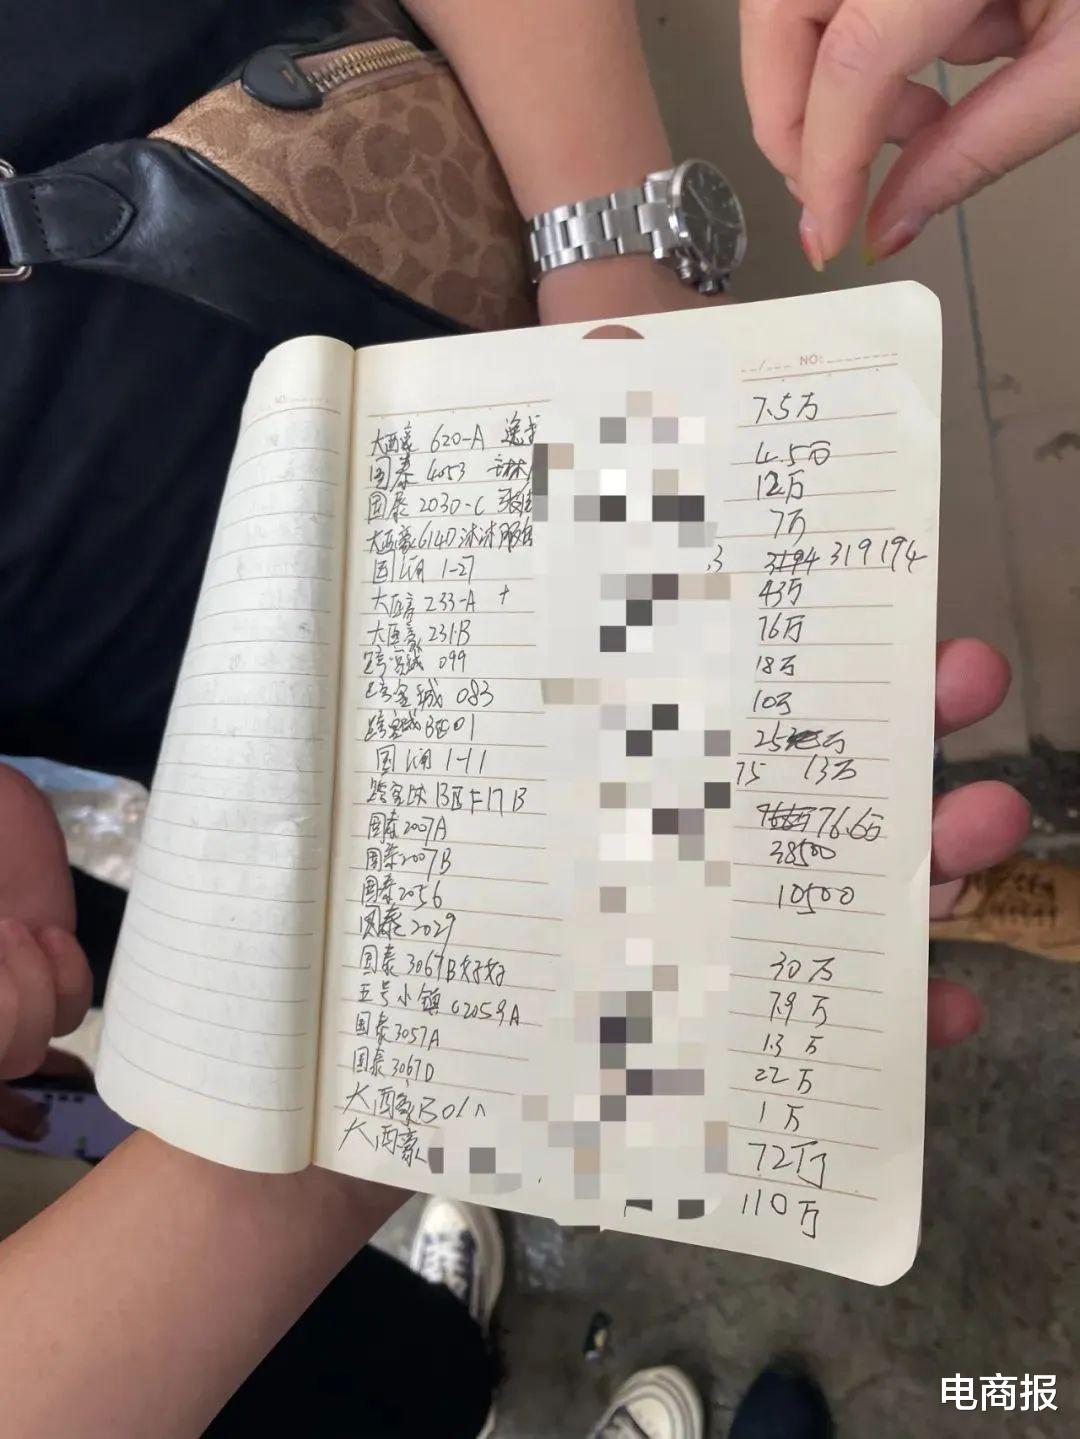 NO:
7.5万
大西豪 620-A
4.5万
国泰 4053
12万
国泰 2030-C
7万
大西豪 614D 沐沐服饰
.3 3194 319194
国润 1-27
43万
大西豪 233-A
76万
大西豪 231.B
18万
跨宝城 099
10万
跨宝城 083
25万
跨宝城 B区01
75 13万
国润 1-11
76.6万
跨宝城 B区F17B
38500
国泰 2007A
10500
国泰 2007B
国泰 2056
国泰 2029
30万
国泰 3067B 好好
7.9万
五号小镇 C2059A
1.3万
国泰 3057A
22万
国泰 3067D
1万
大西豪 B01
72万
大西豪
110万
电商报